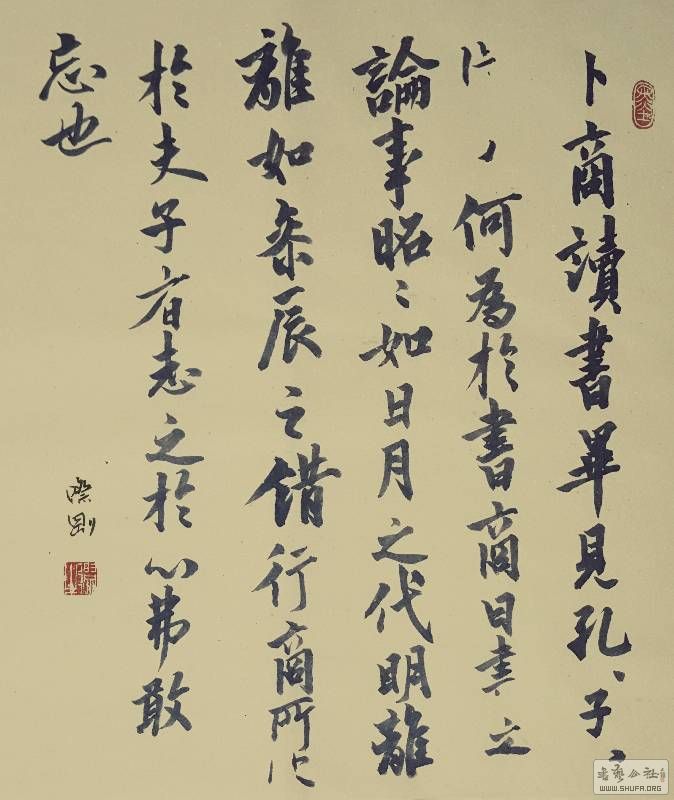 卜商讀書畢見孔〻子〻
何為於書商曰書之
論事昭〻如日月之代明離
離如參辰之錯行商所
於夫子者志之於心弗敢
忘也
WWW.SHUFA.ORG